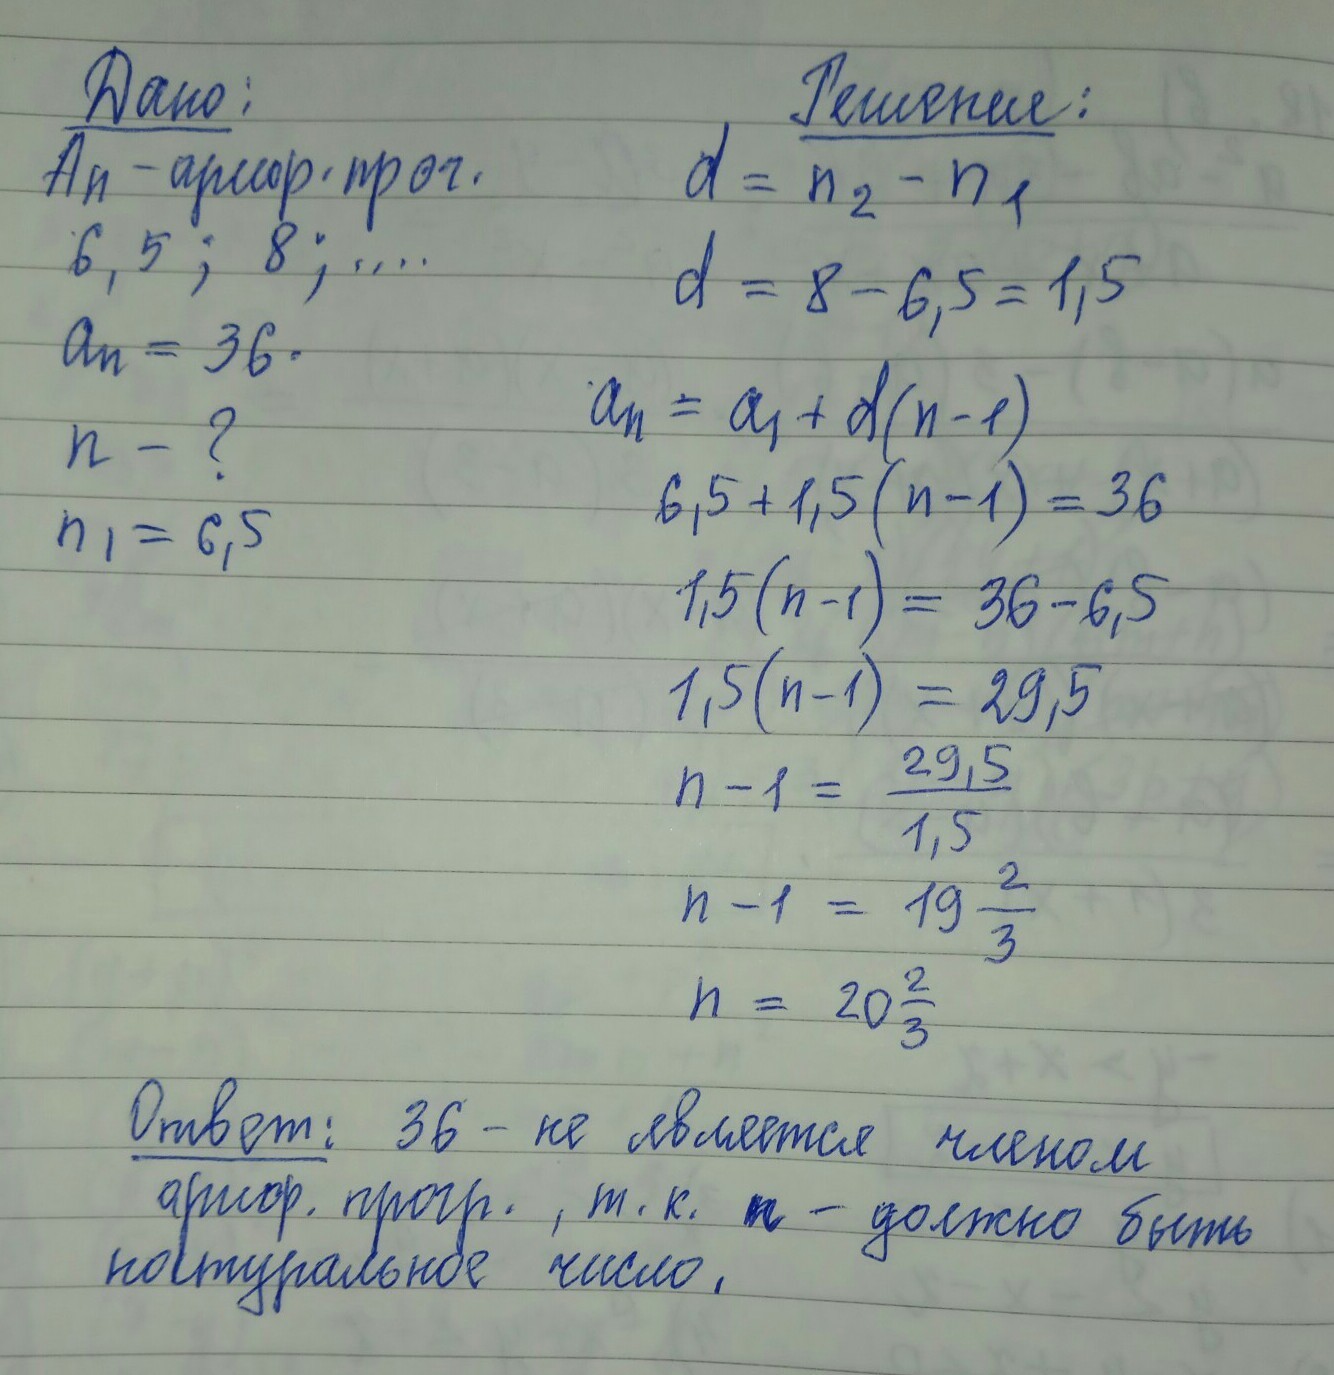 Дано:
Ап - арифм. прог.
6,5; 8; ....
an = 36.
n - ?
n₁ = 6,5
Решение:
d = n₂ - n₁
d = 8 - 6,5 = 1,5
an = a₁ + d(n-1)
6,5 + 1,5(n-1) = 36
1,5(n-1) = 36 - 6,5
1,5(n-1) = 29,5
n - 1 = 29,5/1,5
n - 1 = 19 2/3
n = 20 2/3
Ответ: 36 - не является членом
арифм. прогр., т.к. n - должно быть
натуральное число.